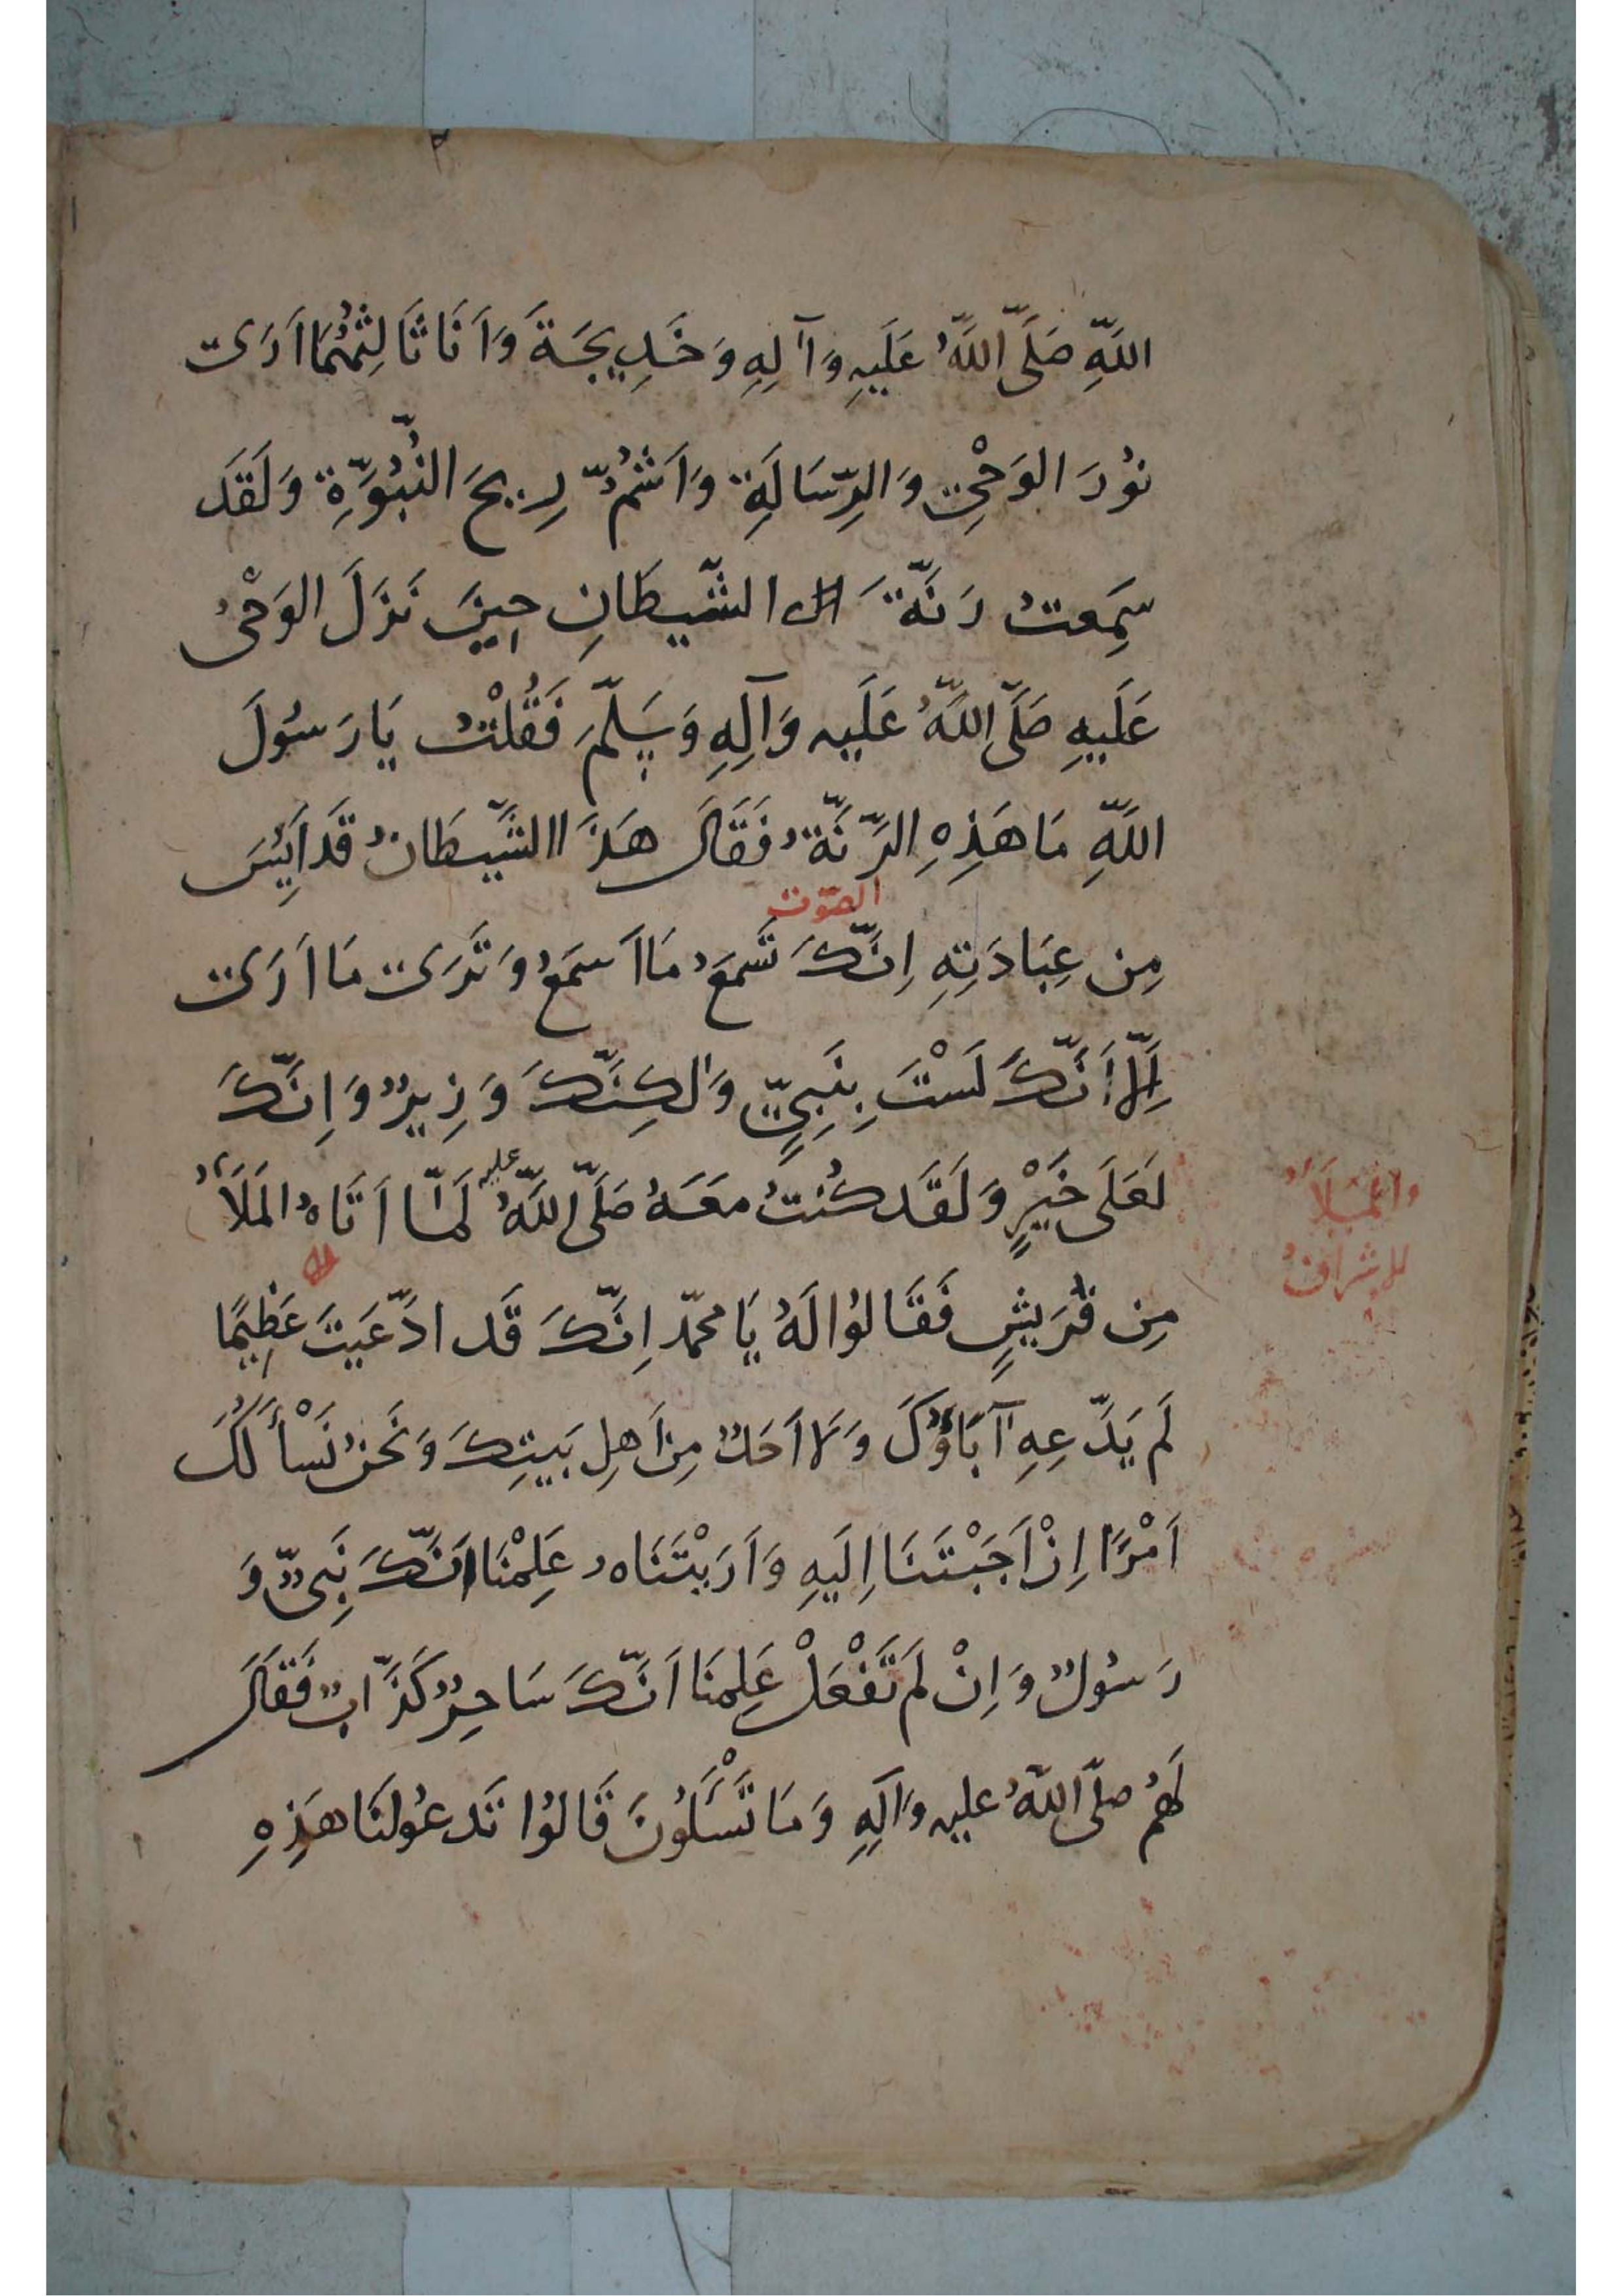 اللَّهِ صَلَّى اللَّهُ عَلَيهِ وَآلِهِ وَخَدِيجَةَ وَاَنَا ثَالِثُهُمَا اَرَى
نُورَ الوَحْيِ وَالرِّسَالَةِ وَاَشُمُّ رِيحَ النُّبُوَّةِ وَلَقَد
سَمِعتُ رَنَّةَ الشَّيطَانِ حِينَ نَزَلَ الوَحْيُ
عَلَيهِ صَلَّى اللَّهُ عَلَيه وَآلِهِ وَسَلَّمَ فَقُلْتُ يَا رَسُولَ
اللَّهِ مَا هَذِهِ الرَّنَّةُ فَقَالَ هَذَا الشَّيطَانُ قَد اَيِسَ
الصّوت
مِن عِبَادَتِهِ اِنَّكَ تَسمَعُ مَا اَسمَعُ وَتَرَى مَا اَرَى
اِلَّا اَنَّكَ لَسْتَ بِنَبِيٍّ وَلكِنَّكَ وَزِيرٌ وَاِنَّكَ
لَعَلَى خَيْرٍ وَلَقَد كُنتُ مَعَهُ صَلَّى اللَّهُ عليه لَمَّا اَتَاهُ المَلَأُ
والملَأُ
الاشرافُ
مِن قُرَيشٍ فَقَالُوا لَهُ يَا محمّد اِنَّكَ قَد ادَّعَيتَ عَظِيمًا
لَم يَدَّعِهِ آبَاؤُكَ وَلَا اَحَدٌ مِن اَهِلِ بَيتِكَ وَنَحنُ نَسْأَلُكَ
اَمْرًا اِنْ اَجَبْتَنَا اِلَيهِ وَاَرَيْتَنَاهُ عَلِمْنَا اَنَّكَ نَبِيٌّ وَ
رَسُولٌ وَاِنْ لَم تَفْعَلْ عَلِمنَا اَنَّكَ سَاحِرٌ كَذَّابٌ فَقَالَ
لَهُم صلَّى اللَّهُ عليه وَآلِهِ وَمَا تَسْأَلُونَ قَالُوا تَدعُو لَنَا هَذِهِ